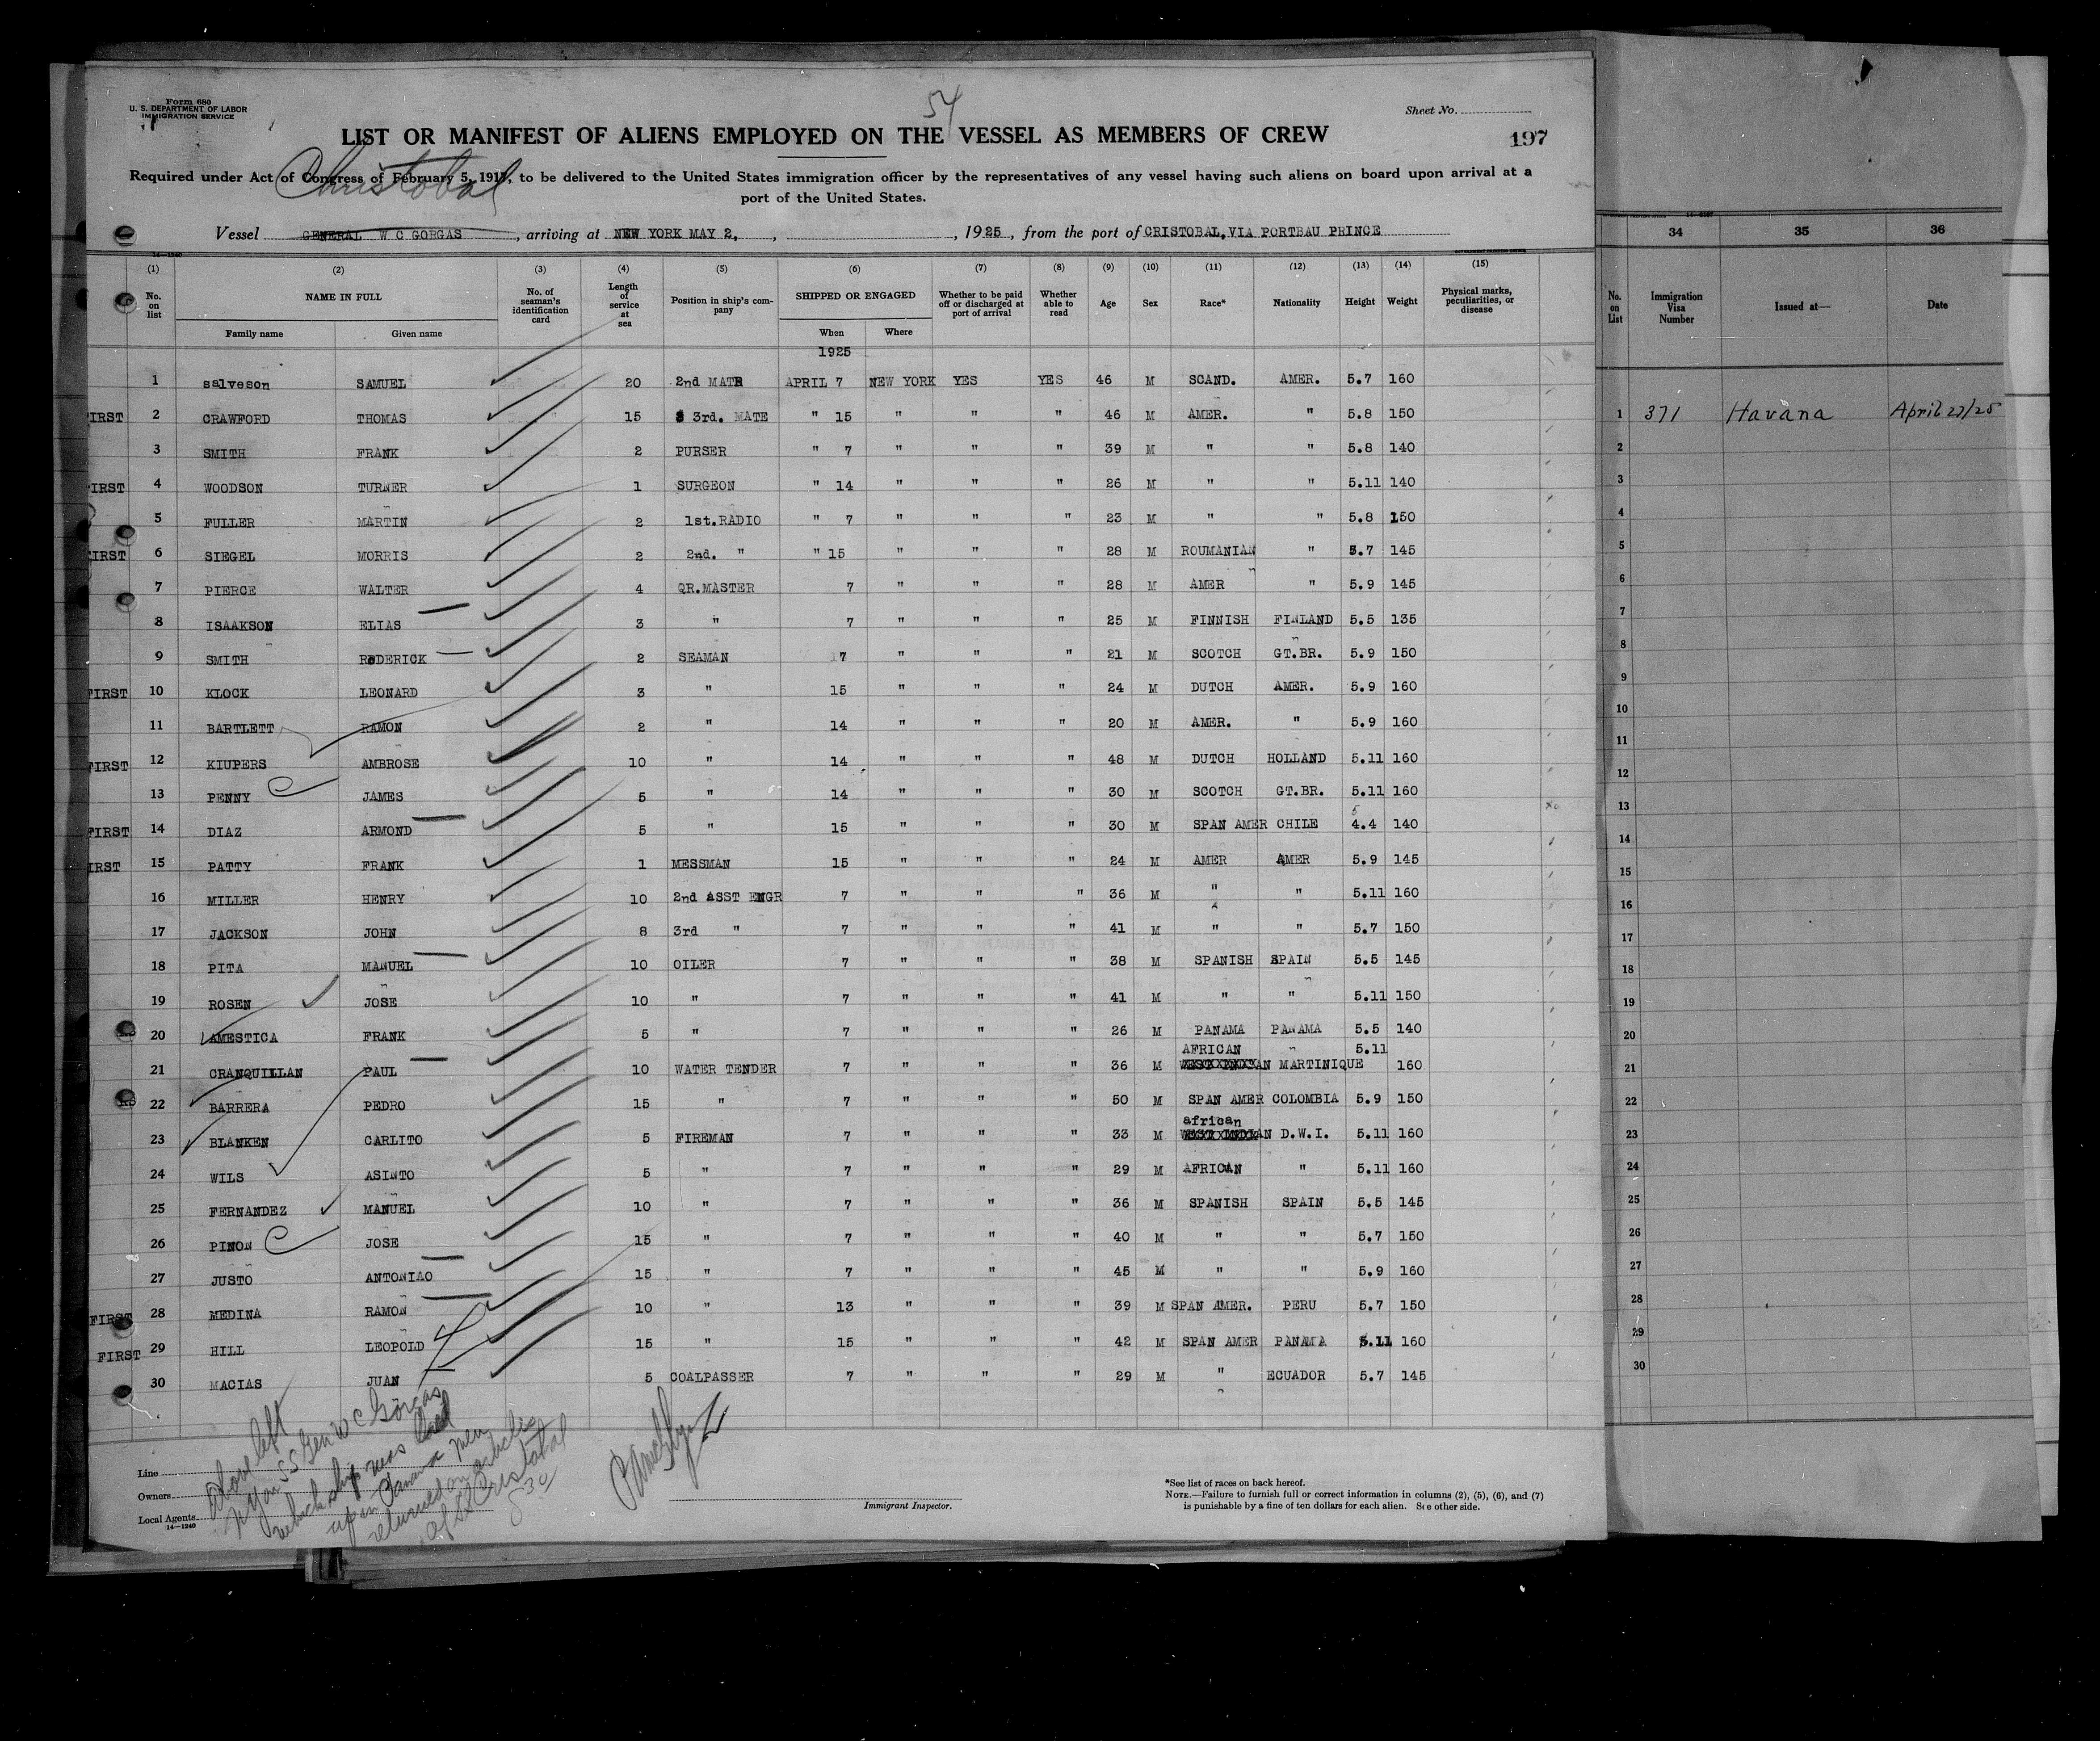 Form 680
U. S. DEPARTMENT OF LABOR
IMMIGRATION SERVICE
54
Sheet No.
LIST OR MANIFEST OF ALIENS EMPLOYED ON THE VESSEL AS MEMBERS OF CREW
197
Christobal
Required under Act of Congress of February 5, 1917, to be delivered to the United States immigration officer by the representatives of any vessel having such aliens on board upon arrival at a
port of the United States.
Vessel GENERAL W C GORGAS, arriving at NEW YORK MAY 2, , 1925, from the port of CRISTOBAL, VIA PORTBAU PRINCE
14—1240
(1) (2) (3) (4) (5) (6) (7) (8) (9) (10) (11) (12) (13) (14) (15)
No. on list NAME IN FULL Family name Given name No. of seaman's identification card Length of service at sea Position in ship's company SHIPPED OR ENGAGED When Where Whether to be paid off or discharged at port of arrival Whether able to read Age Sex Race* Nationality Height Weight Physical marks, peculiarities, or disease
1925
1 salveson SAMUEL 20 2nd MATE APRIL 7 NEW YORK YES YES 46 M SCAND. AMER. 5.7 160
IRST 2 CRAWFORD THOMAS 15 3rd. MATE " 15 " " " 46 M AMER. " 5.8 150
3 SMITH FRANK 2 PURSER " 7 " " " 39 M " " 5.8 140
IRST 4 WOODSON TURNER 1 SURGEON " 14 " " " 26 M " " 5.11 140
5 FULLER MARTIN 2 1st.RADIO " 7 " " " 23 M " " 5.8 150
IRST 6 SIEGEL MORRIS 2 2nd. " " 15 " " " 28 M ROUMANIAN " 5.7 145
7 PIERCE WALTER 4 QR.MASTER 7 " " " 28 M AMER " 5.9 145
8 ISAAKSON ELIAS 3 " 7 " " " 25 M FINNISH FINLAND 5.5 135
9 SMITH RODERICK 2 SEAMAN 7 " " " 21 M SCOTCH GT.BR. 5.9 150
FIRST 10 KLOCK LEONARD 3 " 15 " " " 24 M DUTCH AMER. 5.9 160
11 BARTLETT RAMON 2 " 14 " " " 20 M AMER. " 5.9 160
FIRST 12 KIUPERS AMBROSE 10 " 14 " " " 48 M DUTCH HOLLAND 5.11 160
13 PENNY JAMES 5 " 14 " " " 30 M SCOTCH GT.BR. 5.11 160
FIRST 14 DIAZ ARMOND 5 " 15 " " " 30 M SPAN AMER CHILE 5 4.4 140
IRST 15 PATTY FRANK 1 MESSMAN 15 " " " 24 M AMER AMER 5.9 145
16 MILLER HENRY 10 2nd ASST ENGR 7 " " " 36 M " " 5.11 160
17 JACKSON JOHN 8 3rd " 7 " " " 41 M " " 5.7 150
18 PITA MANUEL 10 OILER 7 " " " 38 M SPANISH SPAIN 5.5 145
19 ROSEN JOSE 10 " 7 " " " 41 M " " 5.11 150
20 AMESTICA FRANK 5 " 7 " " " 26 M PANAMA PANAMA 5.5 140
21 CRANQUILLAN PAUL 10 WATER TENDER 7 " " " 36 M AFRICAN WEST INDIAN MARTINIQUE 5.11 160
22 BARRERA PEDRO 15 " 7 " " " 50 M SPAN AMER COLOMBIA 5.9 150
23 BLANKEN CARLITO 5 FIREMAN 7 " " " 33 M african WEST INDIAN D.W.I. 5.11 160
24 WILS ASINTO 5 " 7 " " " 29 M AFRICAN " 5.11 160
25 FERNANDEZ MANUEL 10 " 7 " " " 36 M SPANISH SPAIN 5.5 145
26 PINON JOSE 15 " 7 " " " 40 M " " 5.7 150
27 JUSTO ANTONIAO 15 " 7 " " " 45 M " " 5.9 160
FIRST 28 MEDINA RAMON 10 " 13 " " " 39 M SPAN AMER. PERU 5.7 150
FIRST 29 HILL LEOPOLD 15 " 15 " " " 42 M SPAN AMER PANAMA 5.11 160
30 MACIAS JUAN 5 COALPASSER 7 " " " 29 M " ECUADOR 5.7 145
Above left
N York SS Gen W C Gorgas
which ship was laid
up in Panama men
returned on articles
of SS Cristobal
Line
Owners
Local Agents
14—1240
Immigrant Inspector.
*See list of races on back hereof.
NOTE.—Failure to furnish full or correct information in columns (2), (5), (6), and (7)
is punishable by a fine of ten dollars for each alien. See other side.
34 35 36
No. on List Immigration Visa Number Issued at— Date
1 371 Havana April 27/25
2
3
4
5
6
7
8
9
10
11
12
13
14
15
16
17
18
19
20
21
22
23
24
25
26
27
28
29
30